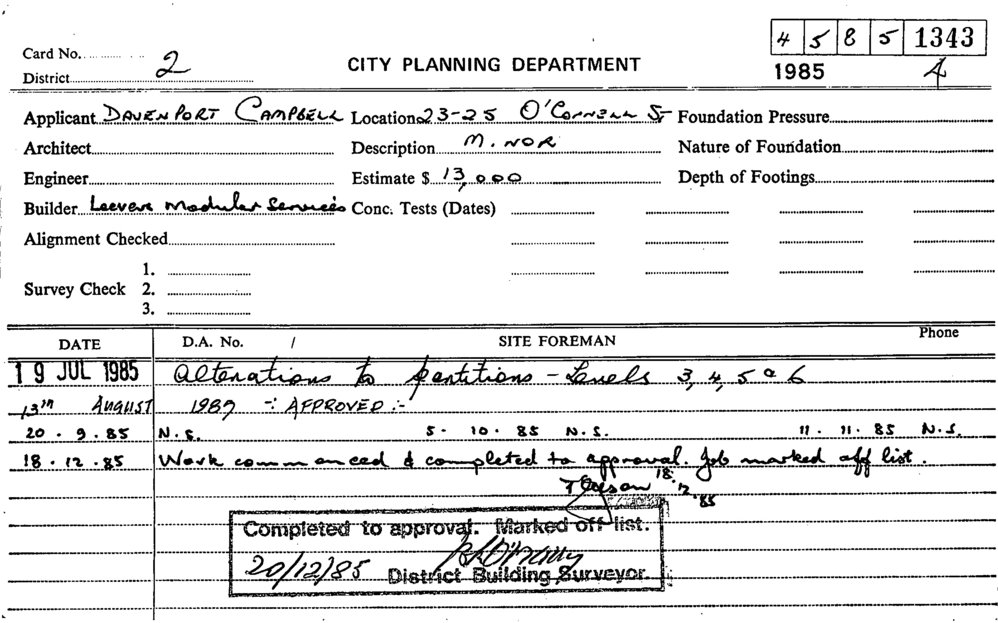 4 5 8 5 1343
Card No.
2
CITY PLANNING DEPARTMENT
1985 A
District
Applicant DAVENPORT CAMPBELL Location 23-25 O'CONNELL ST Foundation Pressure
Architect Description MINOR Nature of Foundation
Engineer Estimate $ 13,000 Depth of Footings
Builder Leevers Modular Services Conc. Tests (Dates)
Alignment Checked
1.
Survey Check 2.
3.
DATE D.A. No. / SITE FOREMAN Phone
19 JUL 1985 Alterations to partitions - Levels 3, 4, 5 & 6
13TH AUGUST 1985 -: APPROVED :-
20 . 9 . 85 N.S. 5 . 10 . 85 N.S. 11 . 11 . 85 N.S.
18 . 12 . 85 Work commenced & completed to approval. Job marked off list.
18.12.85
Completed to approval. Marked off list.
20/12/85 District Building Surveyor.